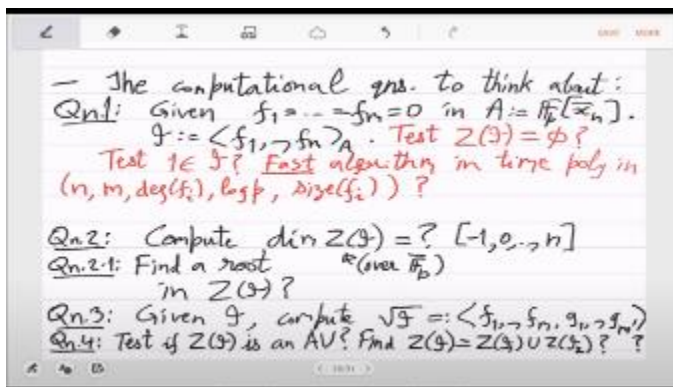 SAVE MORE
— The computational qns. to think about:
Qn.1: Given f₁=...=fₘ=0 in A:= F̄ₚ[x̄ₙ].
𝓘 := <f₁,..,fₘ>_A. Test Z(𝓘)=∅?
Test 1∈𝓘? Fast algorithm in time poly in
(n, m, deg(fᵢ), log p, size(fᵢ))?
Qn.2: Compute dim Z(𝓘)=? [-1,0,..,n]
Qn.2.1: Find a root (over F̄ₚ)
in Z(𝓘)?
Qn.3: Given 𝓘, compute √𝓘 =: <f₁,..,fₘ, g₁,..,gₘ'>
Qn.4: Test if Z(𝓘) is an AV? Find Z(𝓘)=Z(𝓘₁)∪Z(𝓘₂)? ?